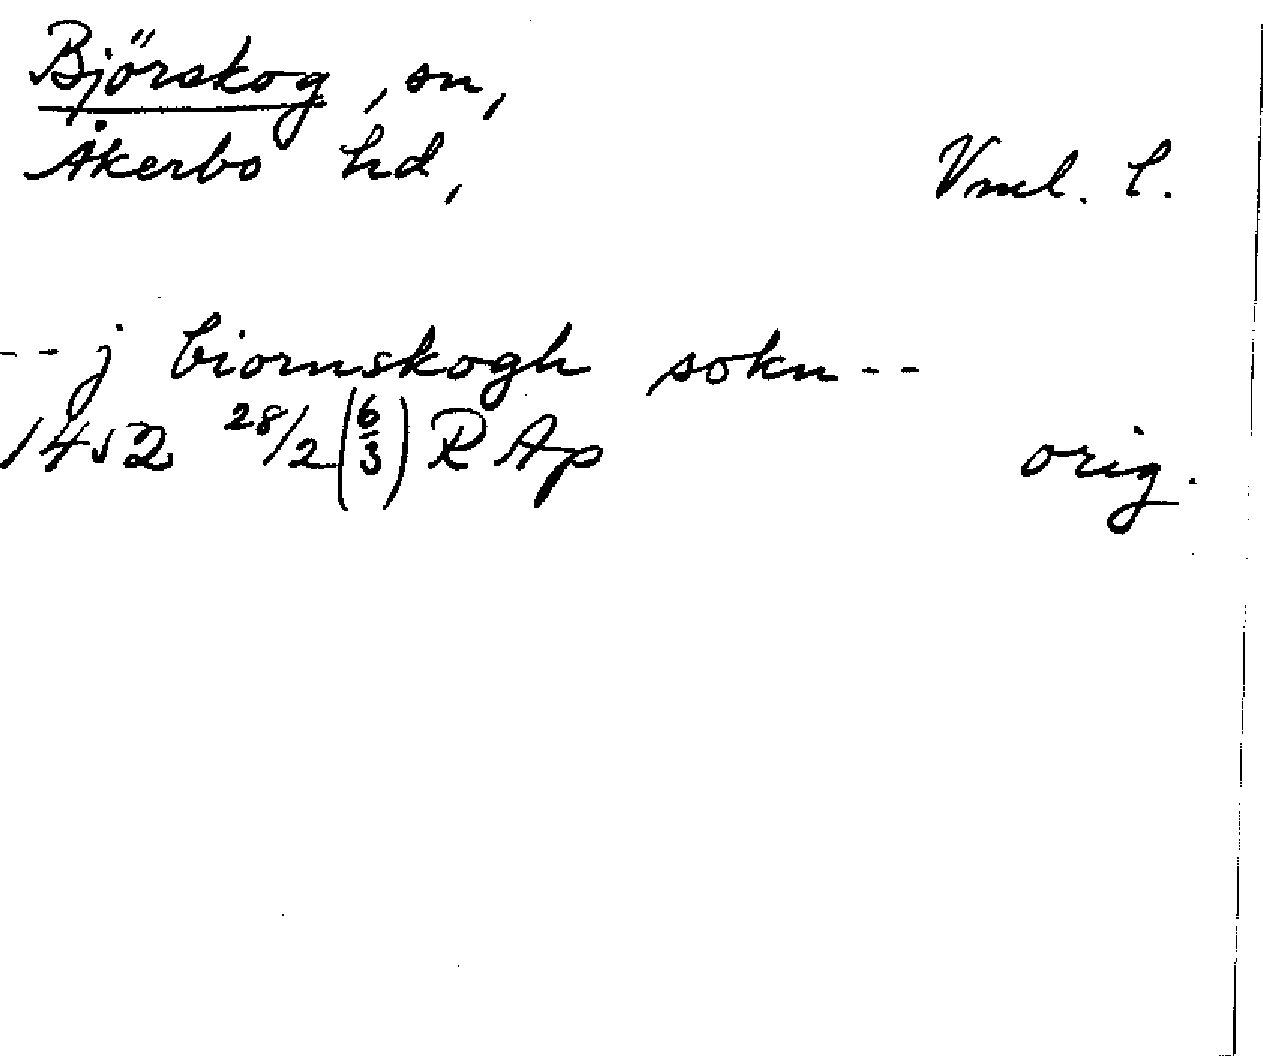 Björskog, sn,
Åkerbo hd, Vml. l.
-- j biornskogh sokn --
1452 28/2 (6/3) R Ap orig.